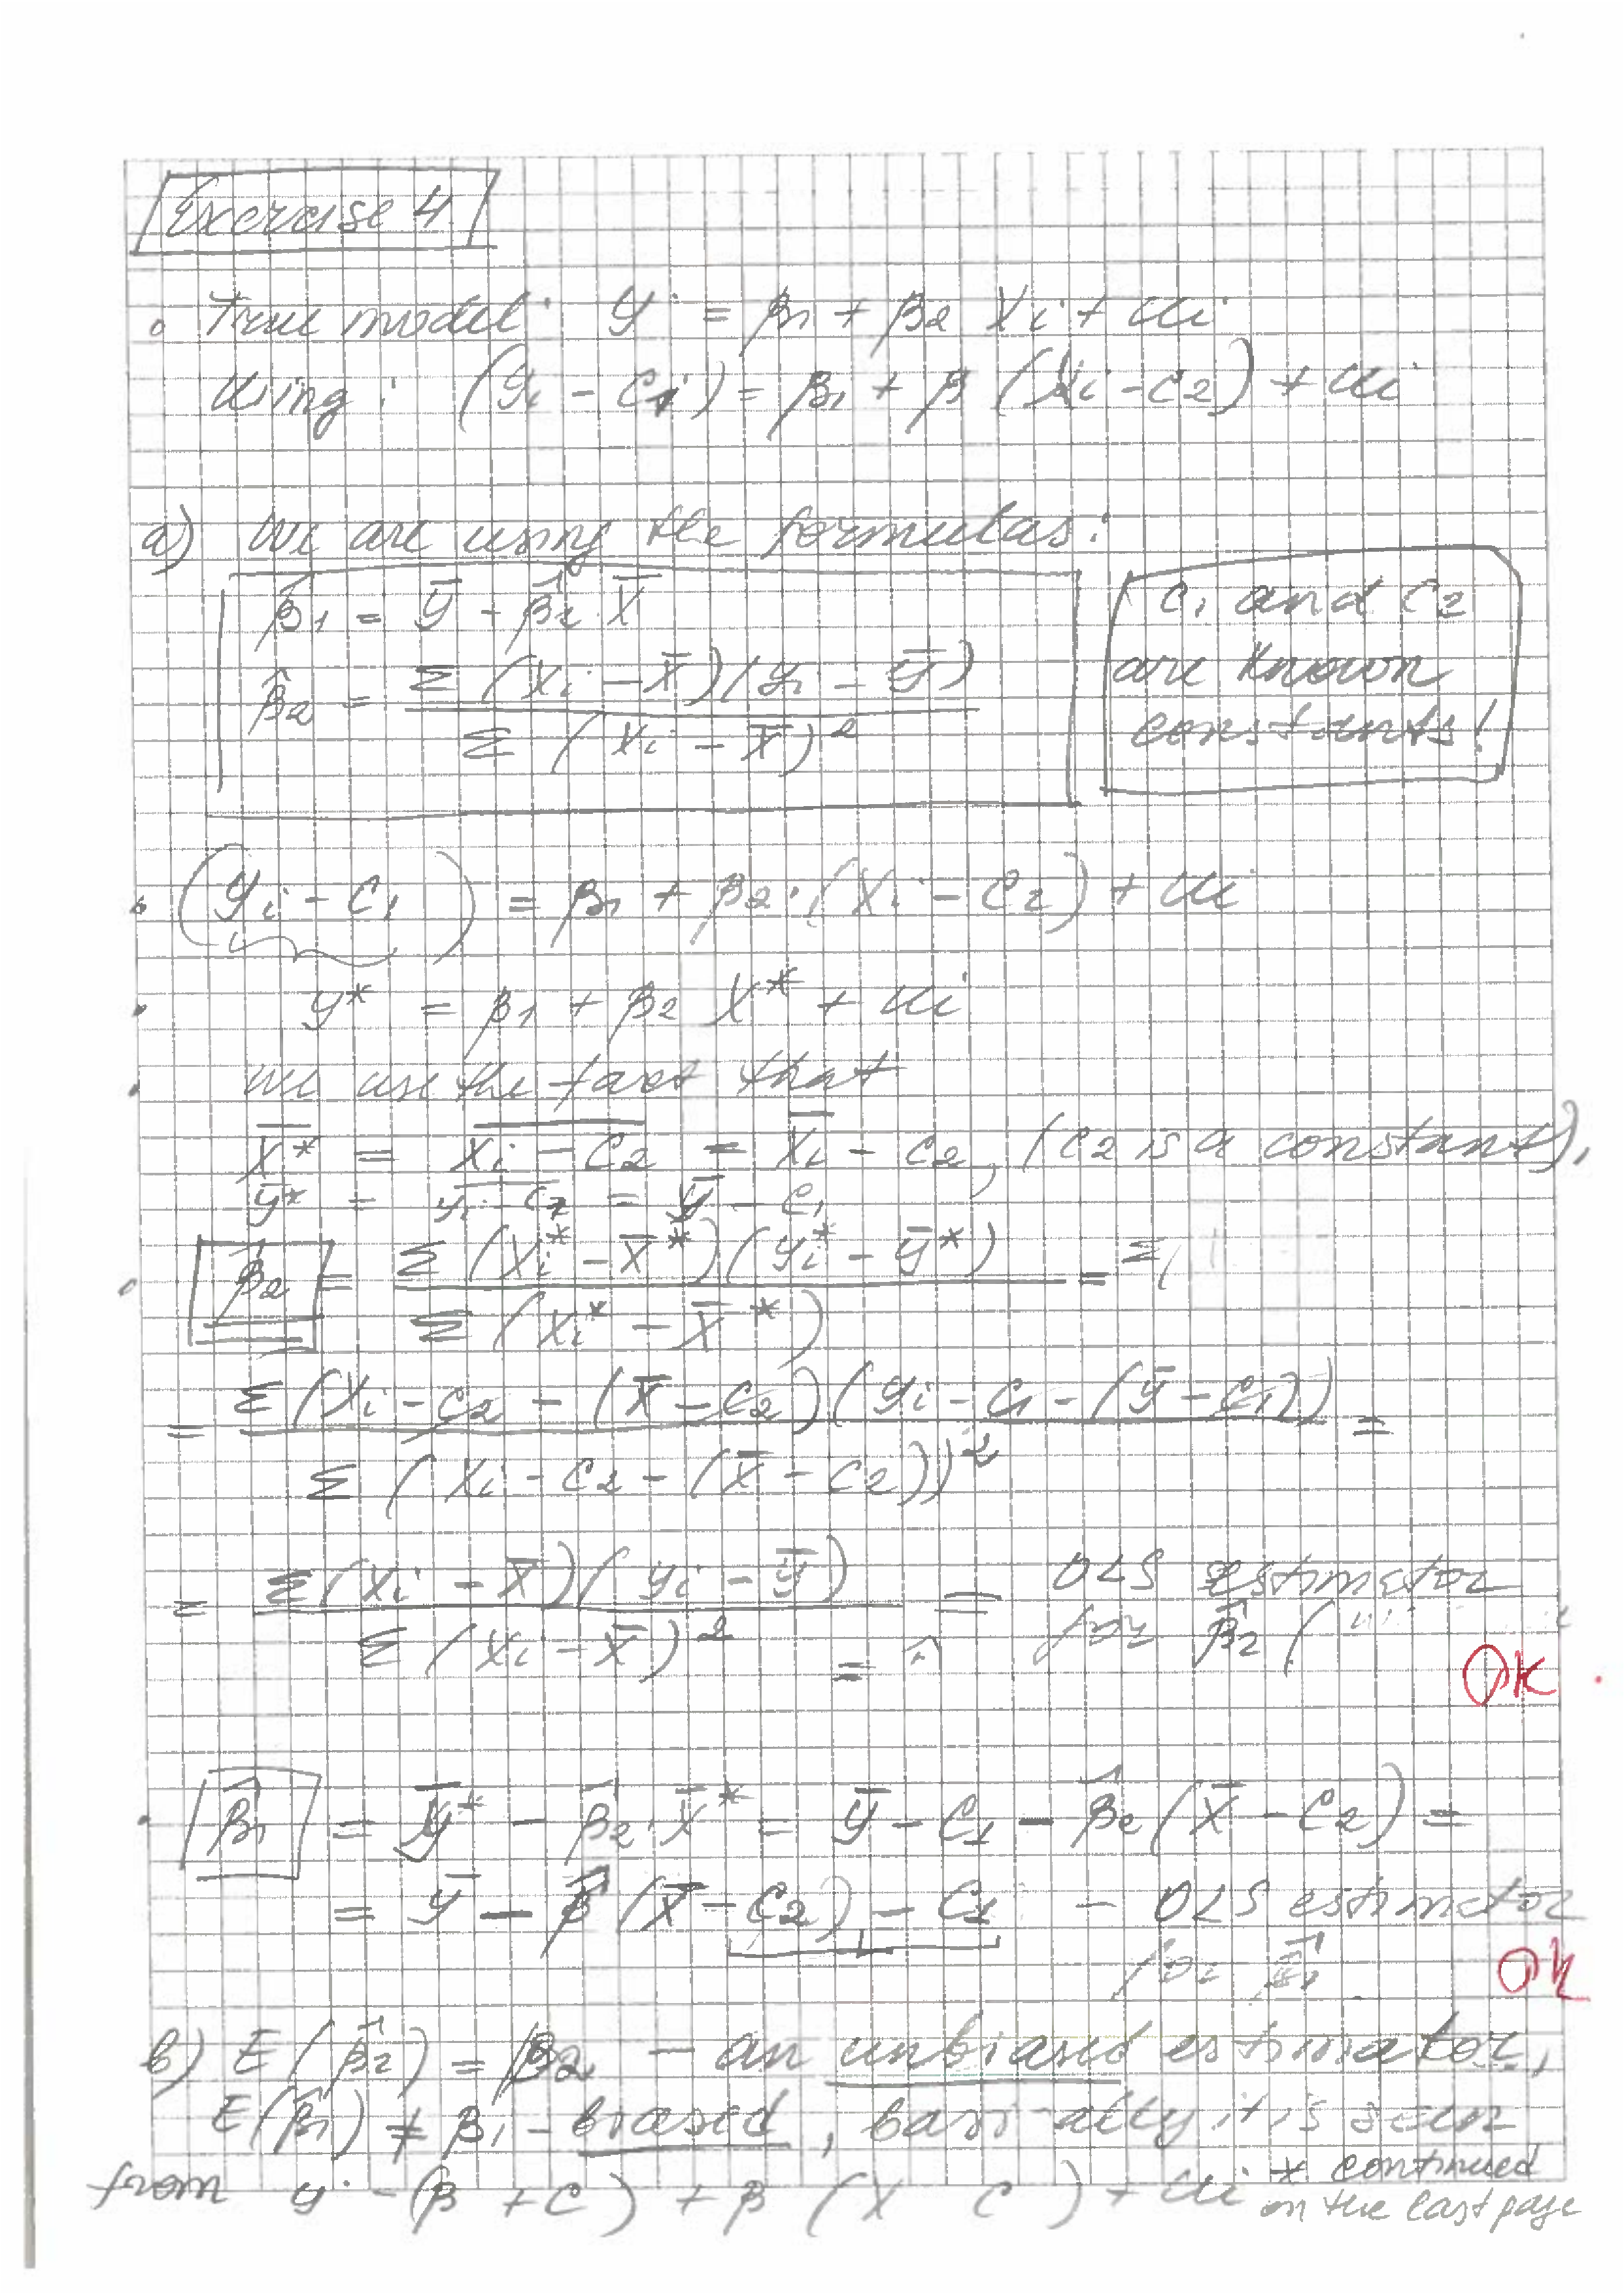 Exercise 4
True model: y = β1 + β2 Xi + ui
Using: (yi - c1) = β1 + β (Xi - c2) + ui
a) We are using the formulas:
β̂1 = ȳ - β̂2 · X̄
β̂2 = Σ (Xi - X̄)(yi - ȳ)
Σ (Xi - X̄)²
c1 and c2
are known
constants!
(yi - c1) = β1 + β2 · (Xi - c2) + ui
y* = β1 + β2 X* + ui
We use the fact that
X̄* = \overline{Xi - c2} = X̄i - c2, (c2 is a constant),
ȳ* = \overline{yi - c2} = ȳ - c1
β̂2 = Σ (Xi* - X̄*)(yi* - ȳ*) = Σ(
Σ (Xi* - X̄*)
= Σ (Xi - c2 - (X̄ - c2)(yi - c1 - (ȳ - c1)) =
Σ (Xi - c2 - (X̄ - c2))²
= Σ (Xi - X̄)(yi - ȳ) = OLS estimator
Σ (Xi - X̄)² = for β̂2 (
OK
β̂1 = ȳ* - β̂2 · X̄* = ȳ - c1 - β̂2 (X̄ - c2) =
= ȳ - β̂ (X̄ - c2) - c1 - OLS estimator
for β̂1
OK
b) E(β̂2) = β2 - an unbiased estimator,
E(β̂1) ≠ β1 - biased, basically it is seen
from y - (β + c ) + β (X c ) + ui * continued
on the last page